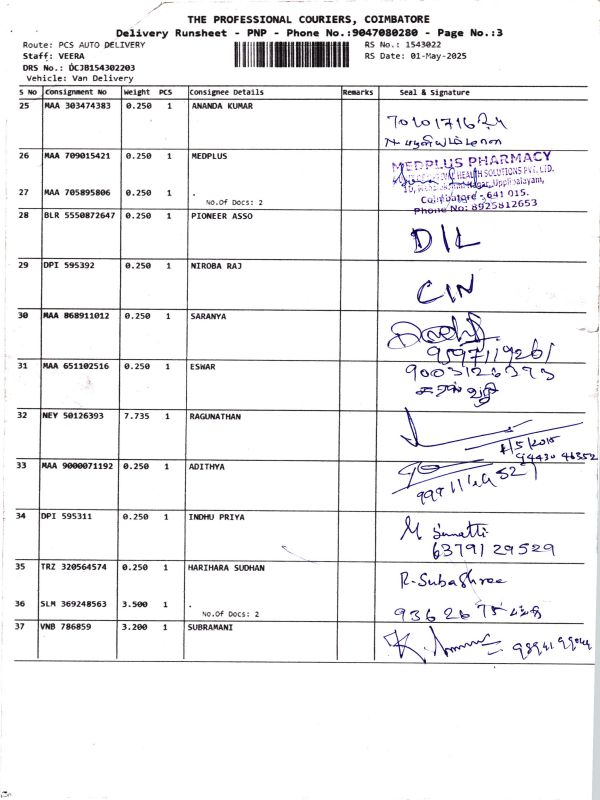 THE PROFESSIONAL COURIERS, COIMBATORE
Delivery Runsheet - PNP - Phone No.:9047080280 - Page No.:3
Route: PCS AUTO DELIVERY RS No.: 1543022
Staff: VEERA RS Date: 01-May-2025
DRS No.: DCJB154302203
Vehicle: Van Delivery
S No Consignment No Weight PCS Consignee Details Remarks Seal & Signature
25 MAA 303474383 0.250 1 ANANDA KUMAR
26 MAA 709015421 0.250 1 MEDPLUS
MEDPLUS PHARMACY
HEALTH SOLUTIONS PVT. LTD.
Nagar, Uppilipalayam,
Coimbatore - 641 015.
Phone No: 8925812653
27 MAA 705895806 0.250 1 .
No.Of Docs: 2
28 BLR 5550872647 0.250 1 PIONEER ASSO
DIL
29 DPI 595392 0.250 1 NIROBA RAJ
CIN
30 MAA 868911012 0.250 1 SARANYA
9597119261
31 MAA 651102516 0.250 1 ESWAR
32 NEY 50126393 7.735 1 RAGUNATHAN
94430 46352
33 MAA 9000071192 0.250 1 ADITHYA
34 DPI 595311 0.250 1 INDHU PRIYA
6379129529
35 TRZ 320564574 0.250 1 HARIHARA SUDHAN
R. Subashree
36 SLM 369248563 3.500 1 .
No.Of Docs: 2
37 VNB 786859 3.200 1 SUBRAMANI